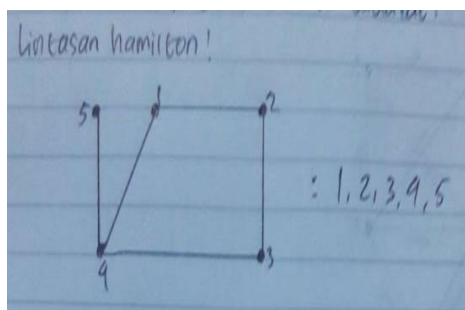 lintasan hamilton!
5 1 2
: 1, 2, 3, 4, 5
4 3